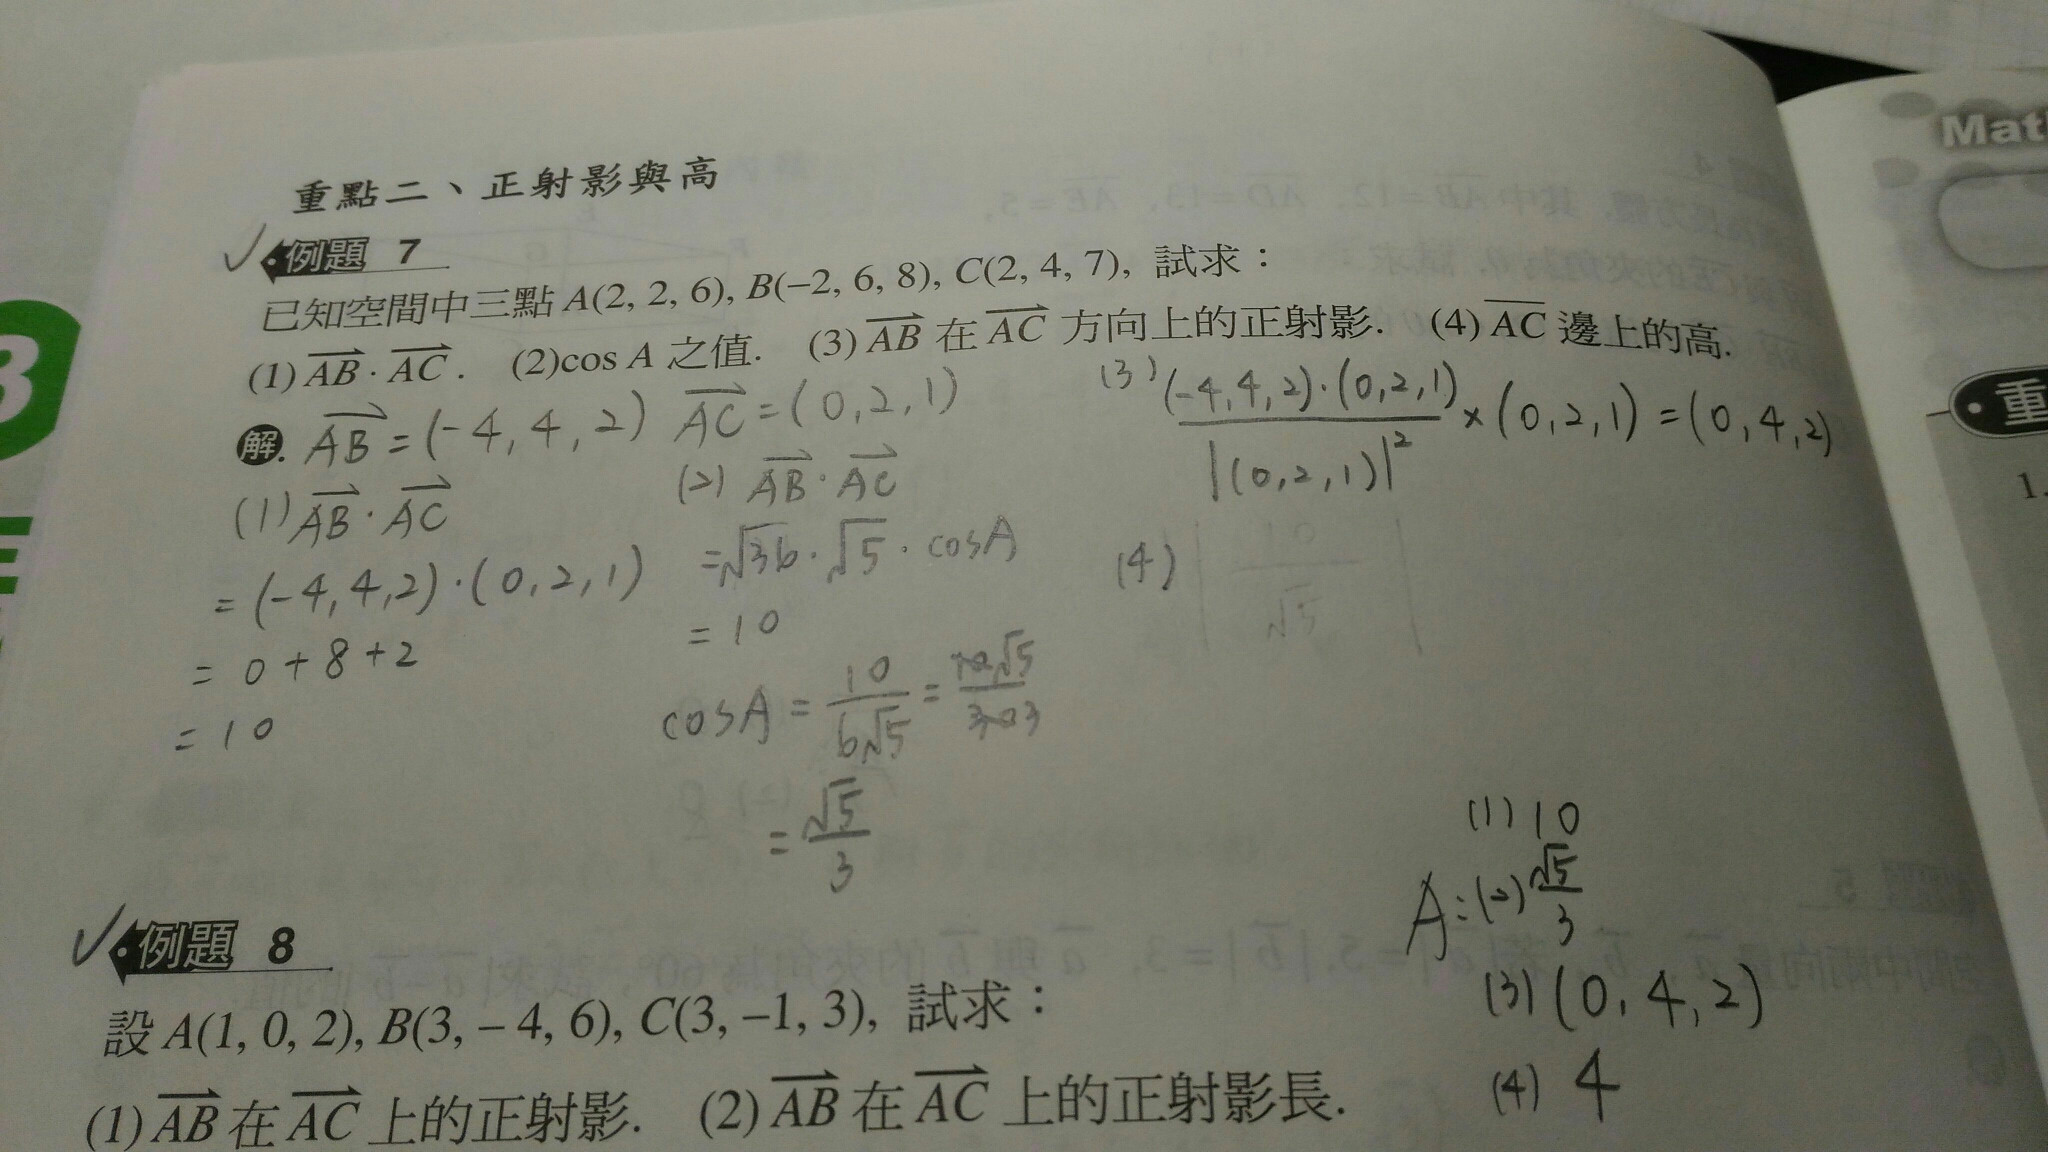 重點二、正射影與高
例題 7
已知空間中三點 A(2, 2, 6), B(–2, 6, 8), C(2, 4, 7), 試求：
(1) AB · AC . (2)cos A 之值. (3) AB 在 AC 方向上的正射影. (4) AC 邊上的高.
解. AB = (-4, 4, 2) AC = (0, 2, 1)
(1) AB · AC
= (-4, 4, 2) · (0, 2, 1)
= 0 + 8 + 2
= 10
(2) AB · AC
= √36 · √5 · cosA
= 10
cosA = 10/6√5 =
= √5/3
(3) (-4, 4, 2) · (0, 2, 1) / |(0, 2, 1)|² × (0, 2, 1) = (0, 4, 2)
(4)
A: (1) 10
(2) √5/3
(3) (0, 4, 2)
(4) 4
例題 8
設 A(1, 0, 2), B(3, – 4, 6), C(3, –1, 3), 試求：
(1) AB 在 AC 上的正射影. (2) AB 在 AC 上的正射影長.
Mat
重
1.
3